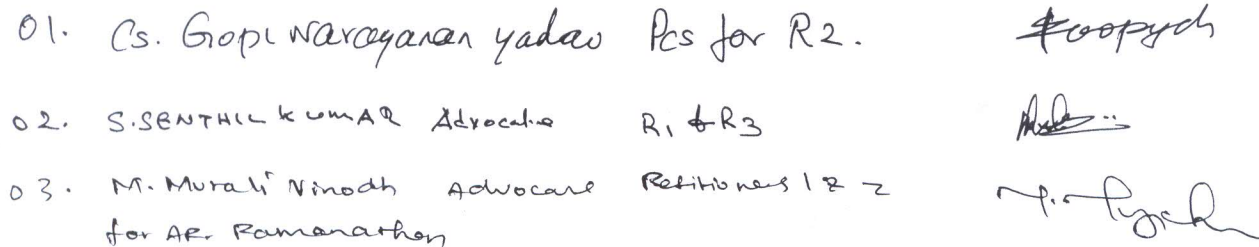 01. Cs. Gopi Narayanan yadav Pcs for R2.
02. S.SENTHIL KUMAR Advocate R1 & R3
03. M. Murali Vinodh Advocate Petitioners 1 & 2
for AR. Ramanathan